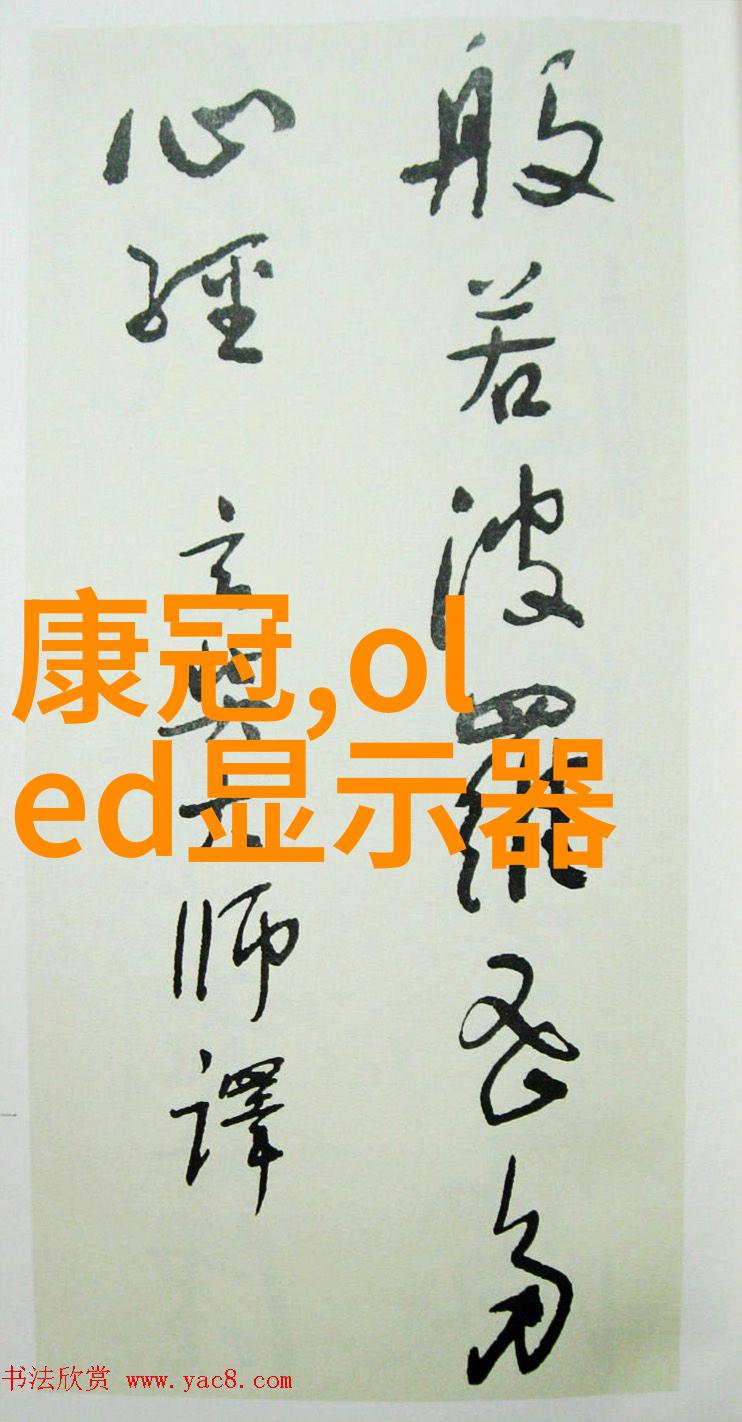 般若波羅蜜多
心經 玄奘大師譯
康冠,ol
ed显示器
书法欣赏 www.yac8.com